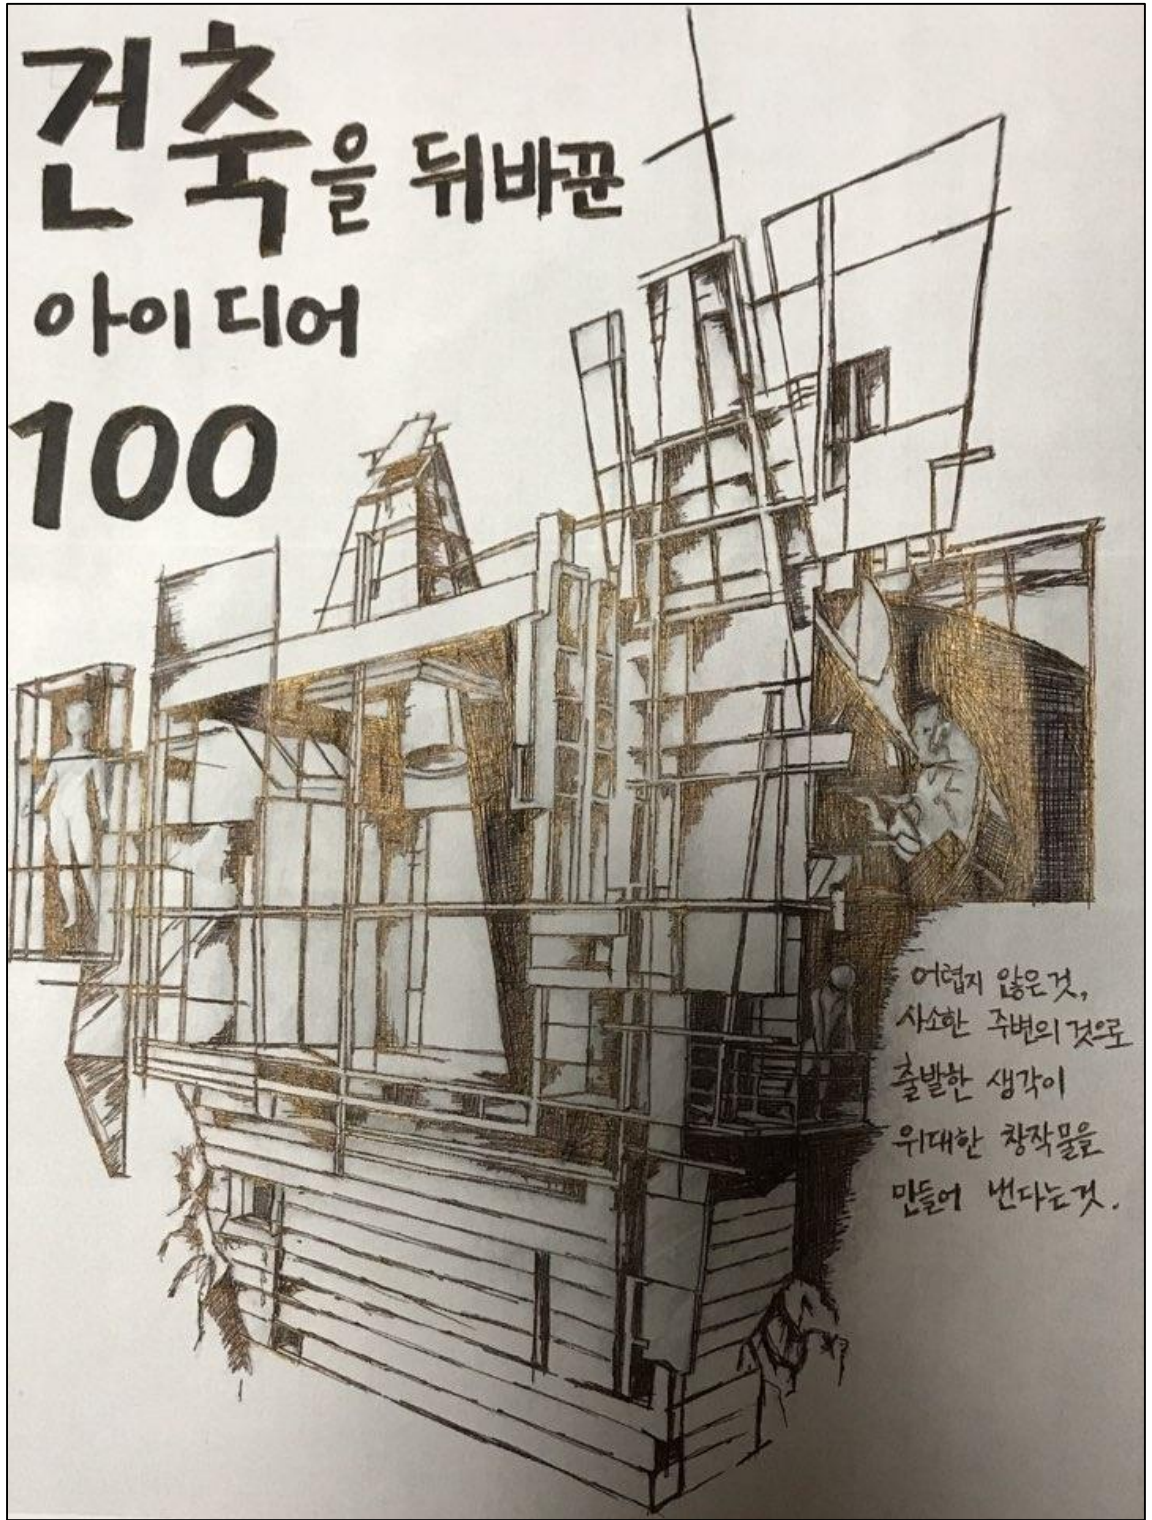 건축을 뒤바꾼
아이디어
100
어렵지 않은것,
사소한 주변의 것으로
출발한 생각이
위대한 창작물을
만들어 낸다는것.